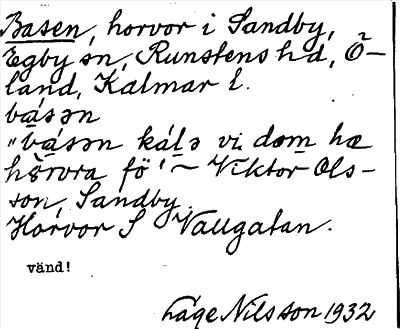 Basen, horvor i Sandby,
Egby sn, Runstens hd, Ö-
land, Kalmar l.
bá̀sən
"bá̀sən kálə vi dəm hæ
hö̀rvra fö' – Viktor Ols-
son, Sandby.
Horvor S Vallgatan.
vänd!
Åge Nilsson 1932